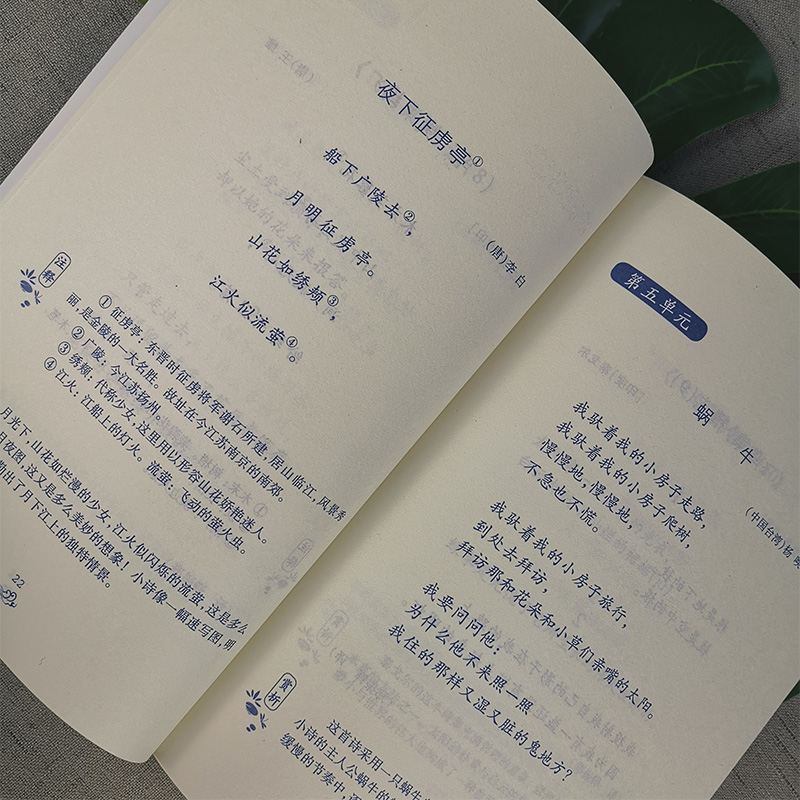 夜下征虏亭①
(唐)李白
船下广陵去②,
月明征虏亭。
山花如绣颊③,
江火似流萤④。
注释
① 征虏亭:东晋时征虏将军谢石所建,居山临江,风景秀
丽,是金陵的一大名胜。故址在今江苏南京的南郊。
② 广陵:今江苏扬州。
③ 绣颊:代称少女,这里用以形容山花娇艳迷人。
④ 江火:江船上的灯火。流萤:飞动的萤火虫。
月光下,山花如烂漫的少女,江火似闪烁的流萤,这是多么
月夜图,这又是多么美妙的想象!小诗像一幅速写图,明
勾出了月下江上的独特情景。
22
第五单元
蜗牛
(中国台湾)杨
我驮着我的小房子走路,
我驮着我的小房子爬树,
慢慢地,慢慢地,
不急也不慌。
我驮着我的小房子旅行,
到处去拜访,
拜访那和花朵和小草们亲嘴的太阳。
我要问问他:
为什么他不来照一照
我住的那样又湿又脏的鬼地方?
赏析
这首诗采用一只蜗牛
小诗的主人公蜗牛的
缓慢的节奏中,